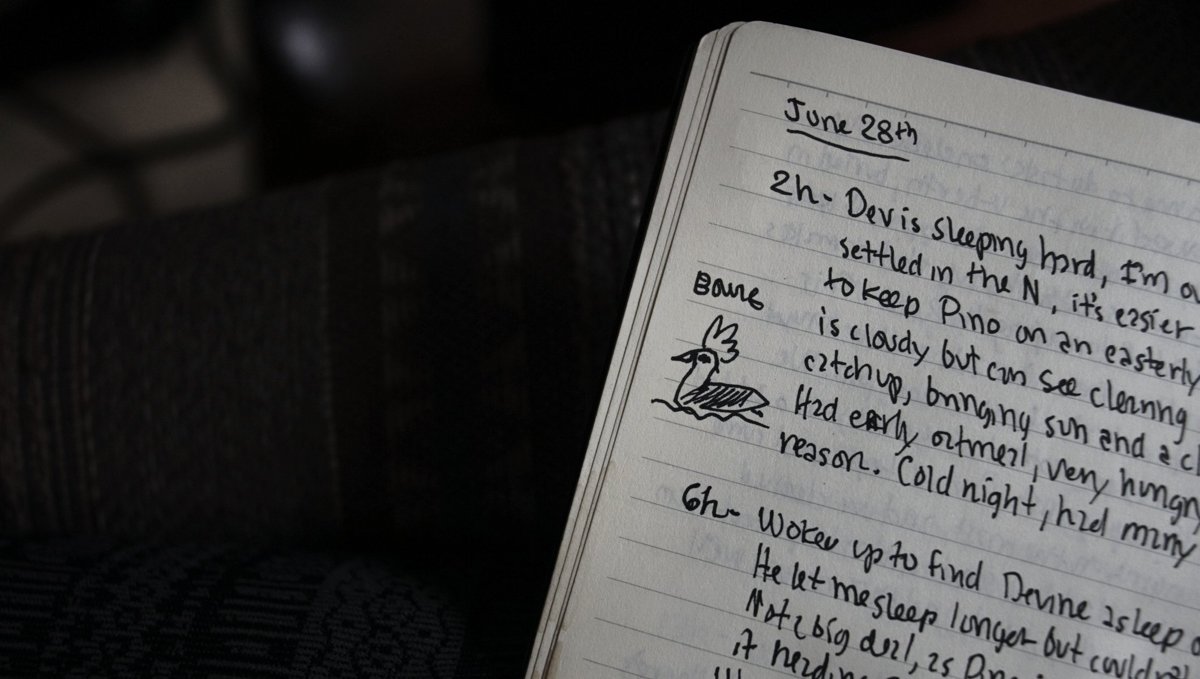 June 28th
2h - Dev is sleeping hard, I'm
settled in the N, it's easier
to keep Pino on an easterly
is cloudy but can see clearing
catch up, bringing sun and a
Had early oatmeal, very hungry
reason. Cold night, had many
6h - Woke up to find Devine asleep
He let me sleep longer but couldn't
Not a big deal, as
it